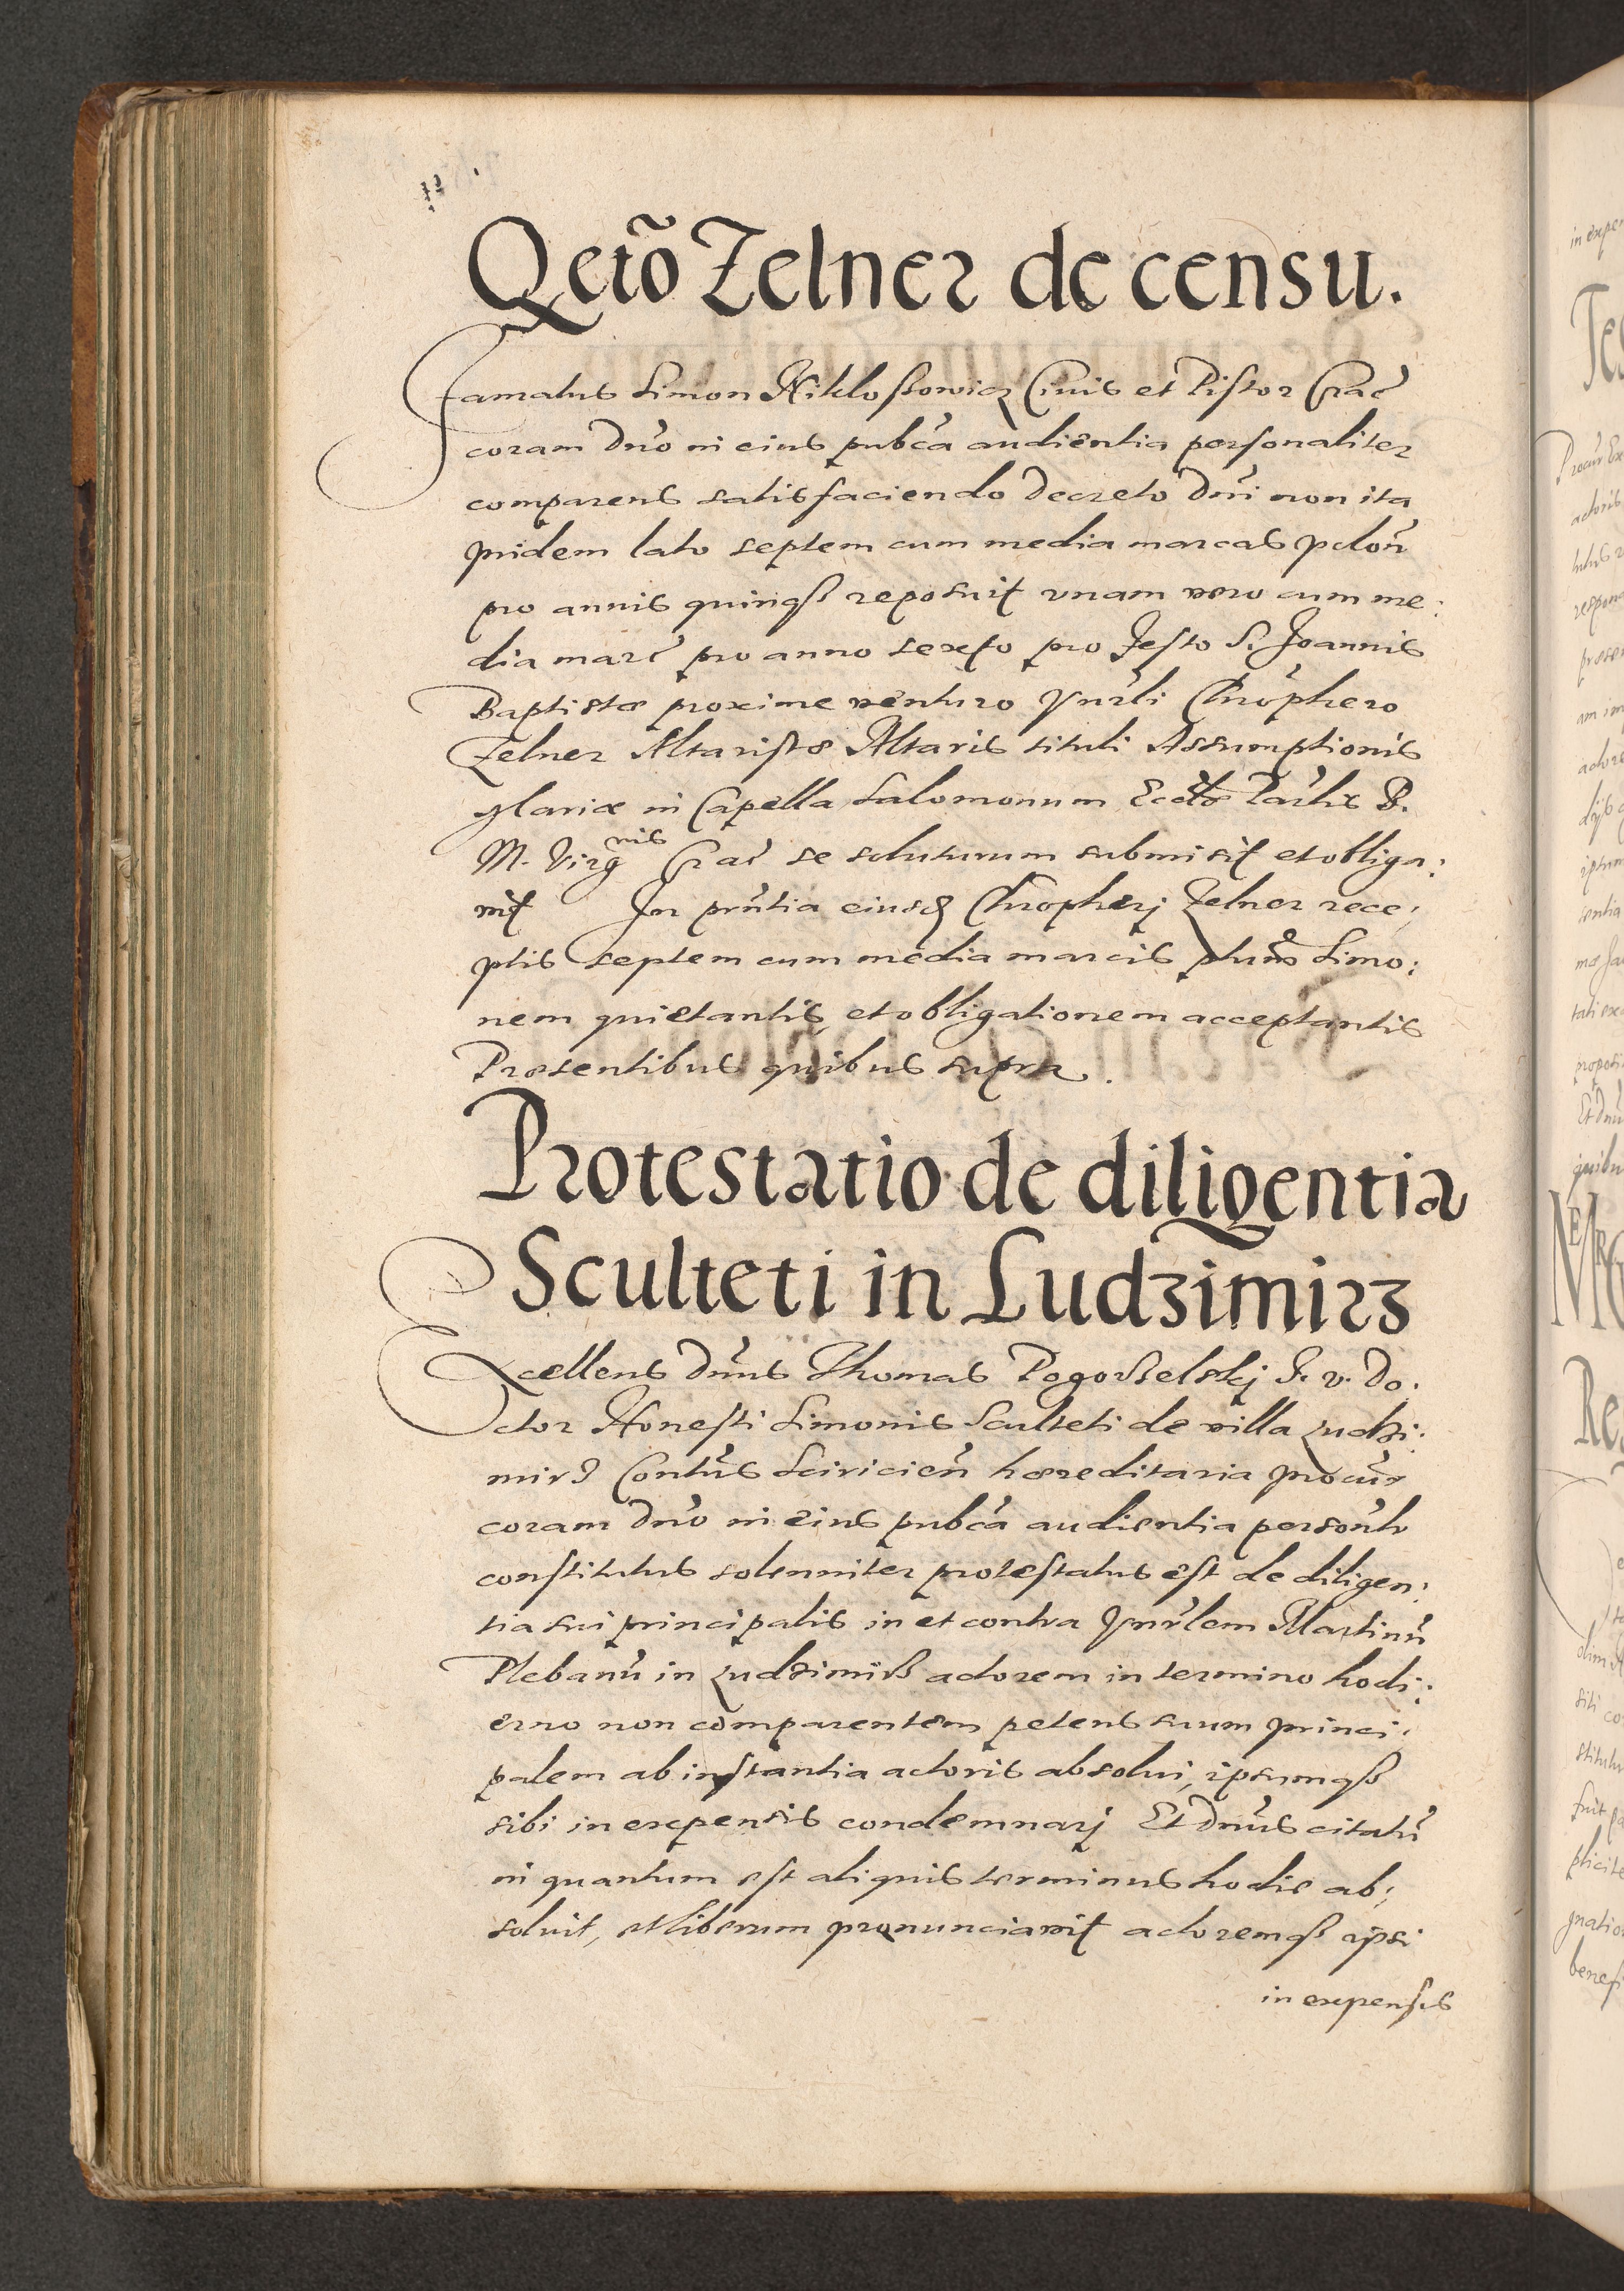 Qetõ Zelner de censu.
Famatus Simon Niklossowicz Ciuis et Pistor Crac̃
coram Dño in eius pubca audientia personaliter
comparens satisfaciendo Decreto Dñi non ita
pridem lato septem cum media marcas polon̄
pro annis quinqз reposuit vnam vero cum me:
dia marc̃ pro anno sexto pro Festo S. Joannis
Baptistæ proxime venturo Vnrli Chrophero
Zelner Altaristæ Altaris tituli Assumptionis
Mariæ in Capella Salomonum Eccłæ Parłis B.
M. Virgnis Crac̃ se soluturum submisit et obliga:
uit In prñtia eiusd Chropherj Zelner rece:
ptis septem cum media marcis Simo:
nem quietantis, et obligationem acceptantis
Præsentibus quibus supra.
Protestatio de diligentia
Sculteti in Ludzimirz
Excellens Dñus Thomas Pogorzelskj J. V. Do:
ctor Honesti Simonis Sculteti de villa Ludzi:
mirz Contũs Sciricień hæreditaria procur̃
coram Dño in eius pubca audientia personłr
constitutus solenniter protestatus est de diligen:
tia sui principalis in et contra Vnrłem Martinũ
Plebanũ in Ludzimirz actorem in termino hodi:
erno non comparentem petens suum princi:
palem ab instantia actoris absolui, ipsumqз
sibi in expensis condemnarj Et Dñus citatũ
in quantum est aliquis terminus hodie ab:
soluit, et liberum pronunciauit actoremqз ipsi
in expensis